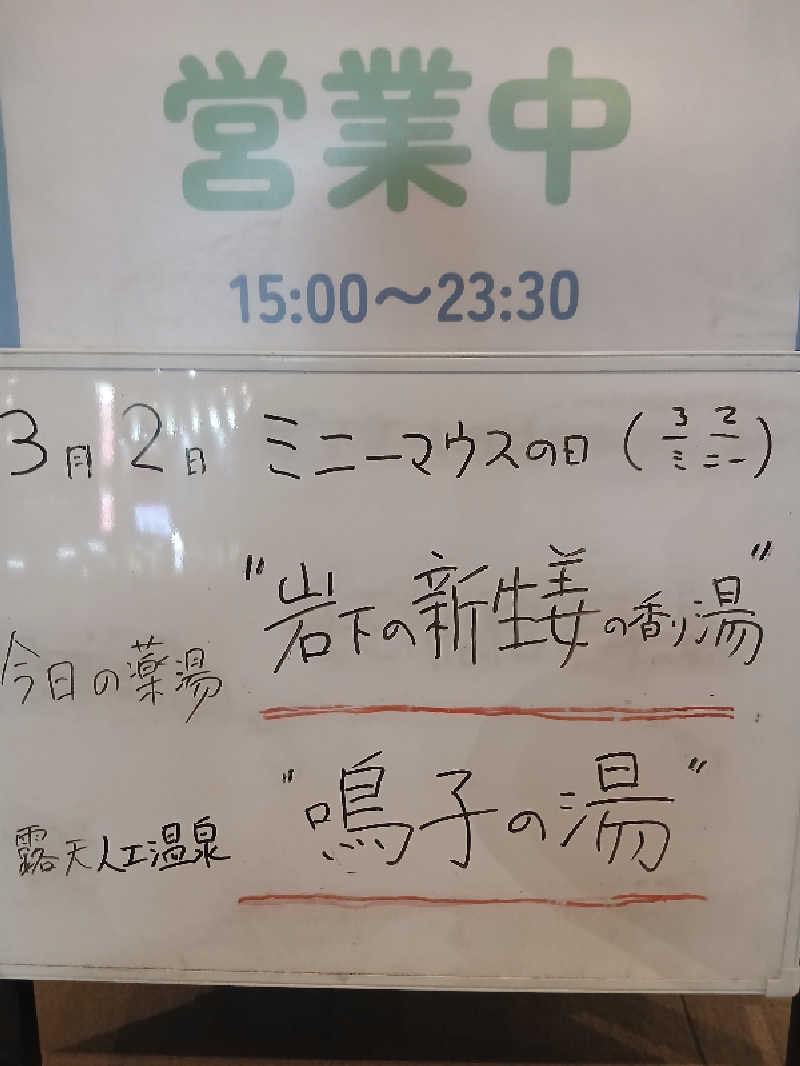 営業中
15:00～23:30
3月2日 ミニーマウスの日 (3 2 ミ ニー)
"岩下の新生姜の香り湯"
今日の薬湯
"鳴子の湯"
露天人工温泉